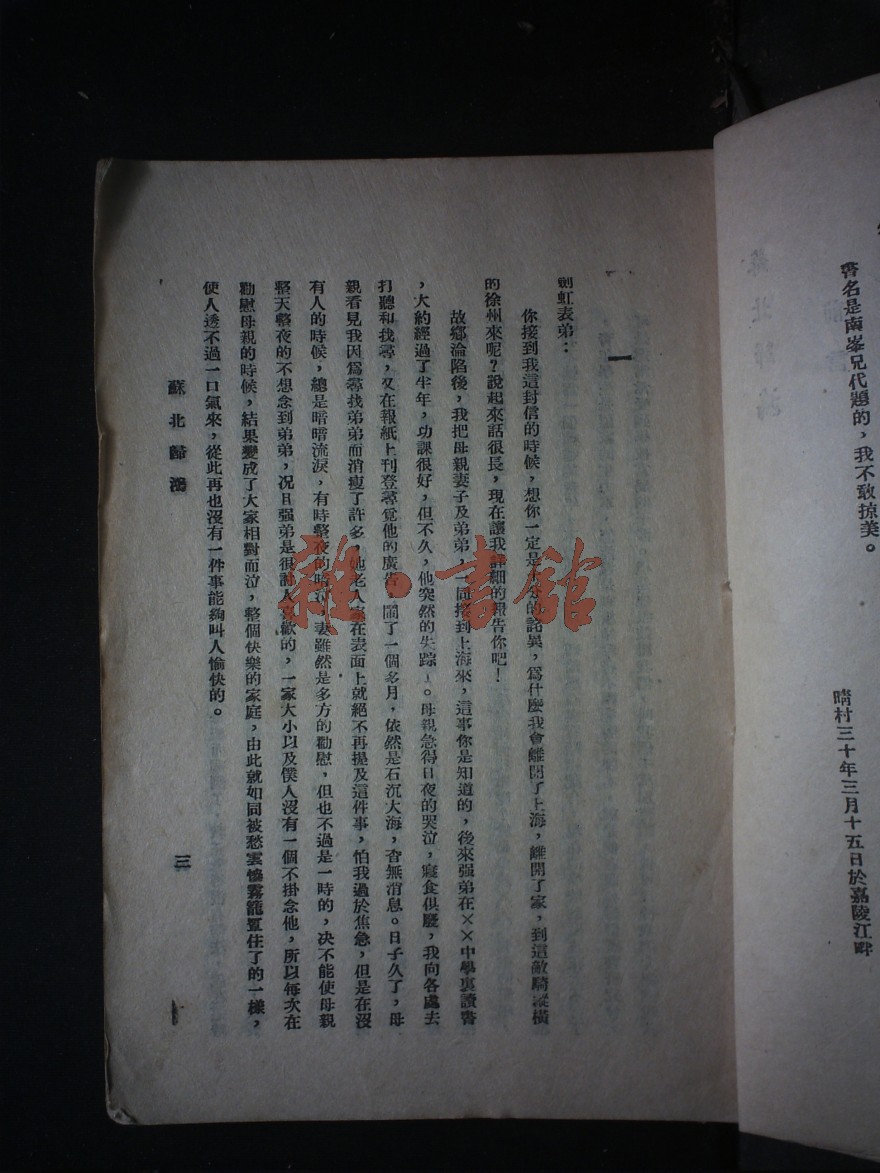 書名是南峯兄代題的，我不敢掠美。
晴村三十年三月十五日於嘉陵江畔
一
劍虹表弟：
你接到我這封信的時候，想你一定是十分的詫異，爲什麼我會離開了上海，離開了家，到這敵騎縱橫
的徐州來呢？說起來話很長，現在讓我詳細的報告你吧！
故鄉淪陷後，我把母親妻子及弟弟，一同接到上海來，這事你是知道的，後來强弟在××中學裏讀書
，大約經過了半年，功課很好，但不久，他突然的失踪了。母親急得日夜的哭泣，寢食俱廢，我向各處去
打聽和找尋，又在報紙上刊登尋覓他的廣告，鬧了一個多月，依然是石沉大海，杳無消息。日子久了，母
親看見我因爲尋找弟弟而消瘦了許多，她老人家在表面上就絕不再提及這件事，怕我過於焦急，但是在沒
有人的時候，總是暗暗流淚，有時整夜的暗泣，妻雖然是多方的勸慰，但也不過是一時的，决不能使母親
整天整夜的不想念到弟弟，况且强弟是很討人喜歡的，一家大小以及僕人沒有一個不掛念他，所以每次在
勸慰母親的時候，結果變成了大家相對而泣，整個快樂的家庭，由此就如同被愁雲慘霧籠罩住了的一樣，
使人透不過一口氣來，從此再也沒有一件事能夠叫人愉快的。
蘇北歸鴻
三
雜·書館